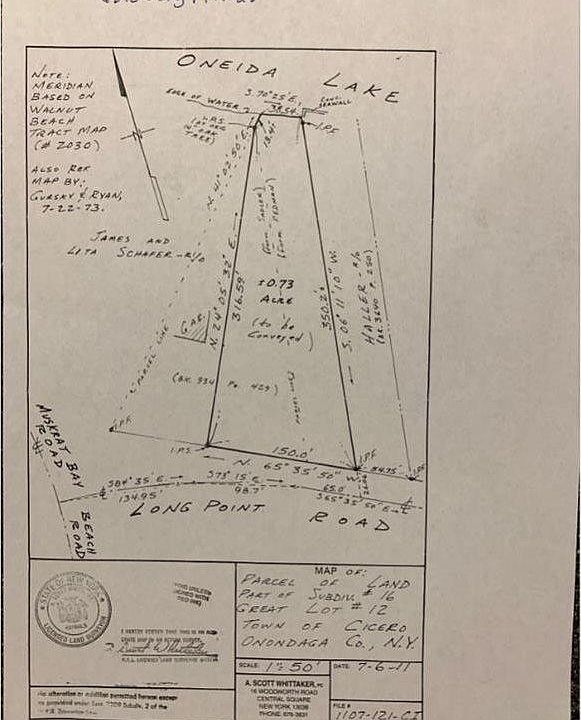 ONEIDA LAKE
NOTE:
MERIDIAN
BASED ON
WALNUT
BEACH
TRACT MAP
(# 2030)
ALSO REF
MAP BY:
GURSKY & RYAN,
7-22-73.
EDGE OF WATER
S. 70° 25' E.
38.54
CONC.
SEAWALL
I.P.F.
18.41
N. 41° 02' 50" E.
JAMES AND
LITA SCHAFER - R/O
N. 24° 05' 32" E
316.59'
±0.73
ACRE
(to be
Conveyed)
350.2'±
S. 06° 11' 10" W.
HALLER - R/O
PARCEL LINE
PARCEL LINE
I.P.F.
I.P.S.
150.0'
N. 65° 35' 50" W
I.P.F.
84.75'
MUSKRAT BAY
ROAD
S84° 35' E
134.95'
S73° 15' E
98.7'
65.0'
S65° 35' 50" E
LONG POINT ROAD
BEACH
ROAD
STATE OF NEW YORK
LICENSED LAND SURVEYOR
MAP OF:
PARCEL OF LAND
PART OF SUBDIV. # 16
GREAT LOT # 12
TOWN OF CICERO
ONONDAGA CO., N.Y.
SCALE: 1"=50'
DATE: 7-6-11
A. SCOTT WHITTAKER, PC
16 WOODWORTH ROAD
CENTRAL SQUARE
NEW YORK 13036
FILE #
1107-121-CI
No alteration or addition permitted hereon except